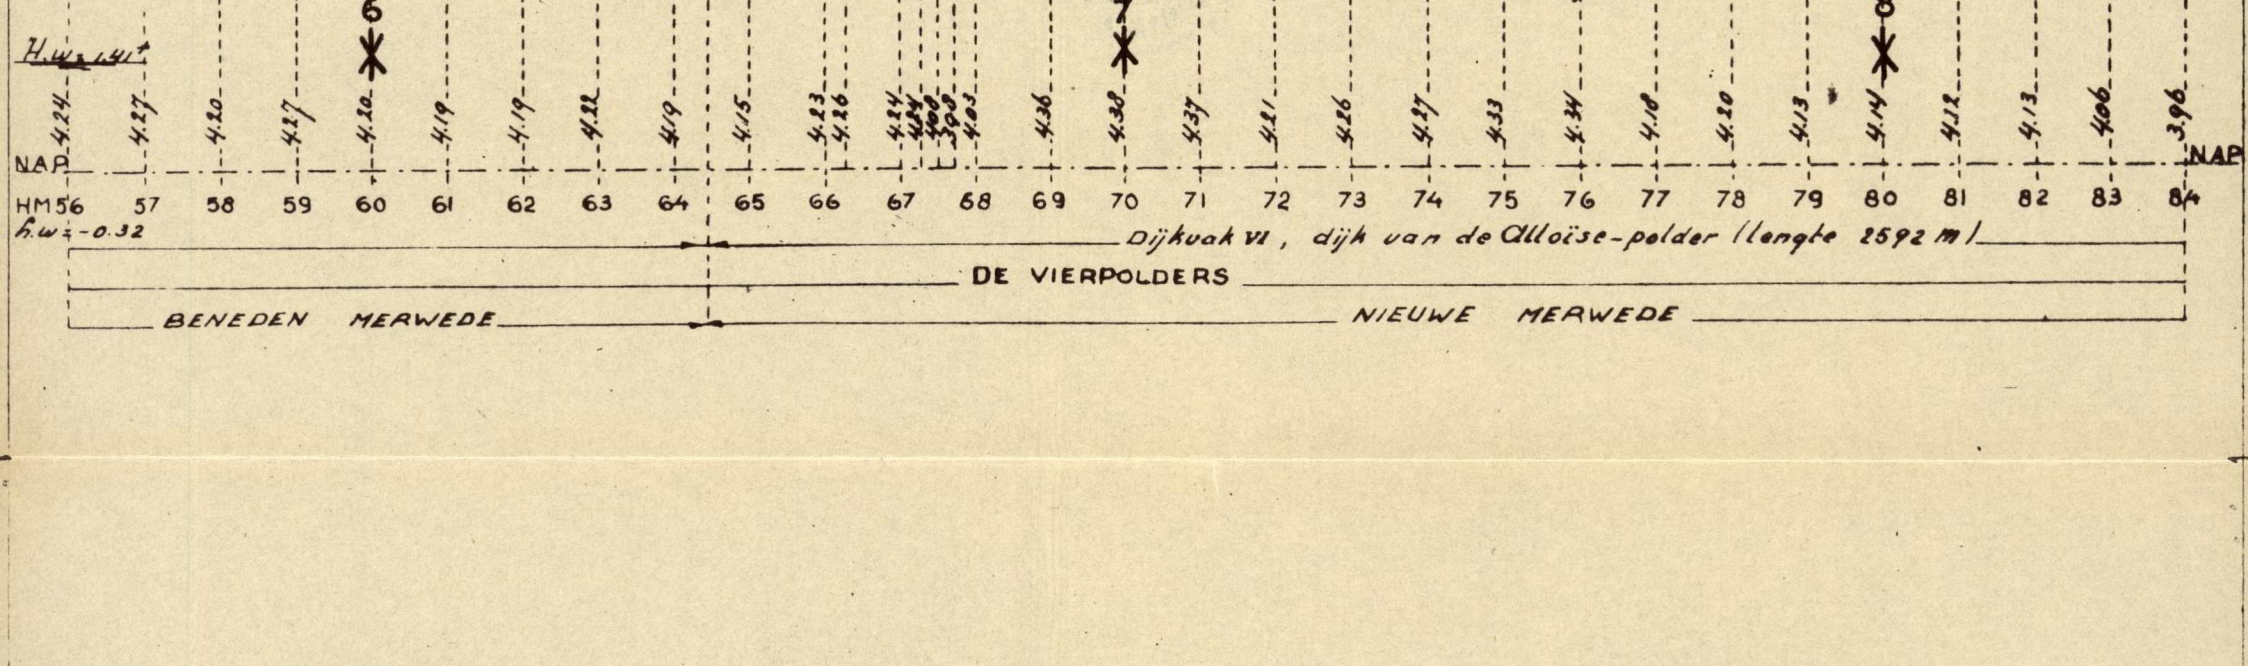 6 7
H.w = 1.41+
4.24 4.27 4.20 4.27 4.20 4.19 4.19 4.22 4.19 4.15 4.23 4.26 4.24 4.24 4.08 3.98 4.03 4.36 4.38 4.37 4.21 4.26 4.27 4.33 4.34 4.18 4.20 4.13 4.14 4.12 4.13 4.06 3.96
NAP NAP
HM 56 57 58 59 60 61 62 63 64 65 66 67 68 69 70 71 72 73 74 75 76 77 78 79 80 81 82 83 84
h.w = -0.32
Dijkvak VI, dijk van de Alloïse-polder (lengte 2592 m)
DE VIERPOLDERS
BENEDEN MERWEDE NIEUWE MERWEDE